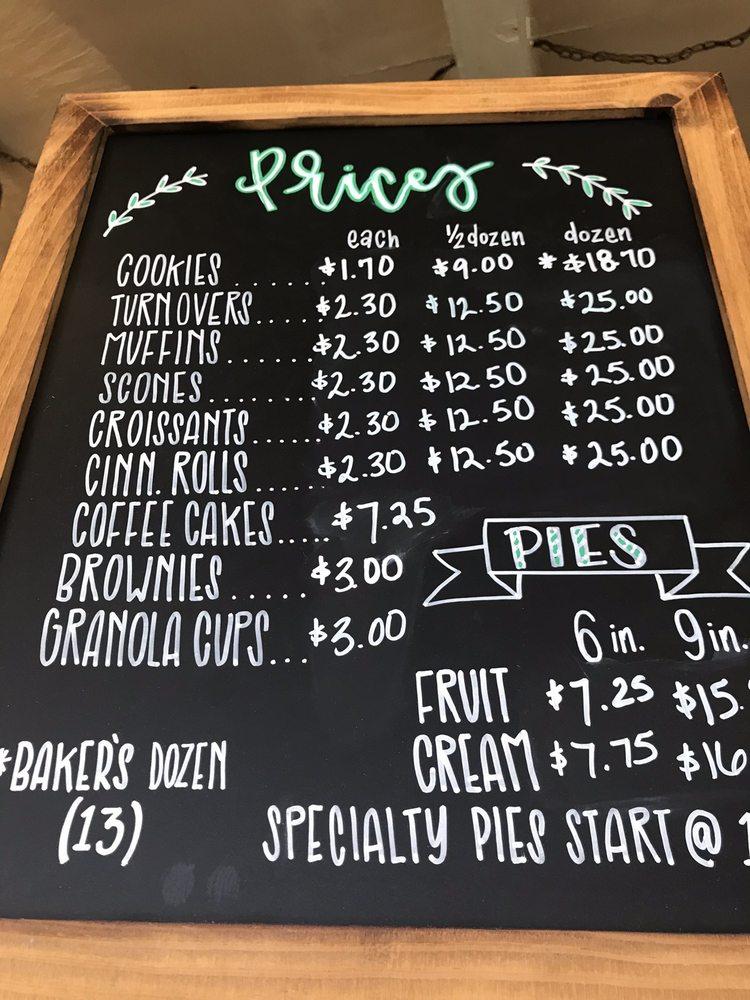 Prices
each ½ dozen dozen
COOKIES ....... $1.70 $9.00 *$18.70
TURNOVERS.... $2.30 $12.50 $25.00
MUFFINS ...... $2.30 $12.50 $25.00
SCONES........ $2.30 $12.50 $25.00
CROISSANTS...... $2.30 $12.50 $25.00
CINN. ROLLS ..... $2.30 $12.50 $25.00
COFFEE CAKES..... $7.25
BROWNIES ...... $3.00
GRANOLA CUPS... $3.00
PIES
6 in. 9 in.
FRUIT $7.25 $15.
CREAM $7.75 $16
*BAKER'S DOZEN
(13)
SPECIALTY PIES START @